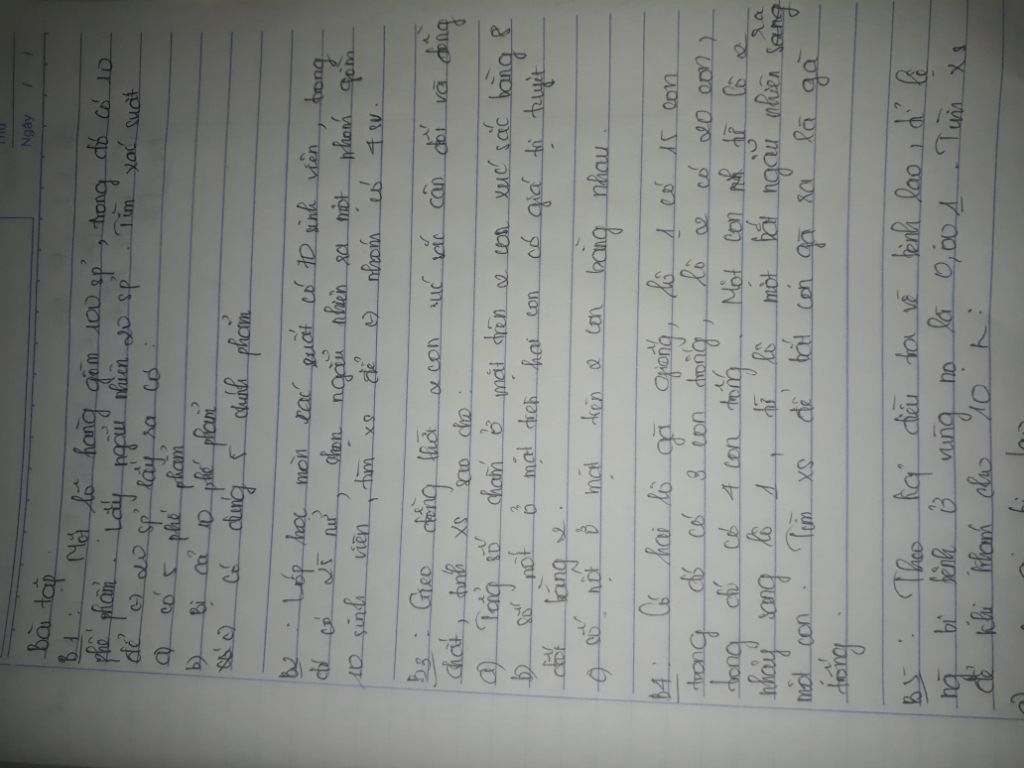 Thứ
Ngày / /
Bài tập
B1: Một lô hàng gồm 100 sp', trong đó có 10
phế phẩm. Lấy ngẫu nhiên 20 sp'. Tìm xác suất
để 20 sp' lấy ra có:
a) có 5 phế phẩm
b) Bị cả 10 phế phẩm
c) có đúng 5 chính phẩm
B2: Lớp học môn xác suất có 10 sinh viên, trong
đó có 25 nữ, chọn ngẫu nhiên ra một nhóm gồm
10 sinh viên, tìm xs để nhóm có 4 sv.
B3: Gieo đồng thời 2 con xúc sắc cân đối và đồng
chất, tính xs sao cho:
a) Tổng số chấm ở mặt trên 2 con xúc sắc bằng 8
b) số nốt ở mặt trên hai con có giá trị tuyệt
đối bằng 2.
c) số nốt ở mặt trên 2 con bằng nhau.
B4: Có hai lô gà giống, lô 1 có 15 con
trong đó có 3 con trống, lô 2 có 20 con,
trong đó có 4 con trống. Một con từ lô 2
nhảy sang lô 1, từ lô 1 bắt ngẫu nhiên ra
một con. Tìm xs để bắt con gà ra là gà
trống.
B5: Theo kq' điều tra về bệnh lao, tỉ lệ
ng bị bệnh ở vùng nọ là 0,001. Tìm xs
để khi khám cho 10 ng: